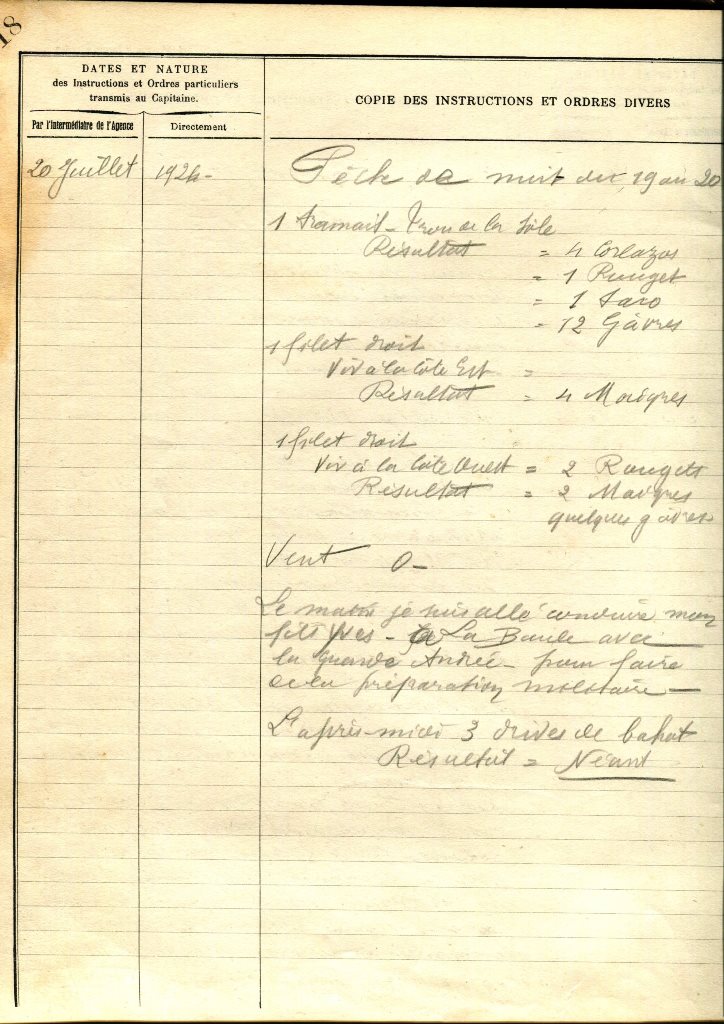 18
DATES ET NATURE
des Instructions et Ordres particuliers
transmis au Capitaine.
Par l'Intermédiaire de l'Agence
Directement
COPIE DES INSTRUCTIONS ET ORDRES DIVERS
20 Juillet 1926 -
Pêch de nuit du 19 au 20
1 tramail - Trou de la Sole
Résultat = 4 Corlazos
= 1 Rouget
= 1 Saro
= 12 Gâvres
1 filet droit
Vir à la Côte Est =
Résultat = 4 Maigres
1 filet droit
Vir à la Côte Ouest = 2 Rougets
Résultat = 2 Maigres
quelques gâvres
Vent O -
Le matin je suis allé conduire mon
fils Yves - La Baule avec
la grande Andrée - pour faire
de la préparation militaire -
L'après-midi 3 drives de bahot
Résultat = Néant